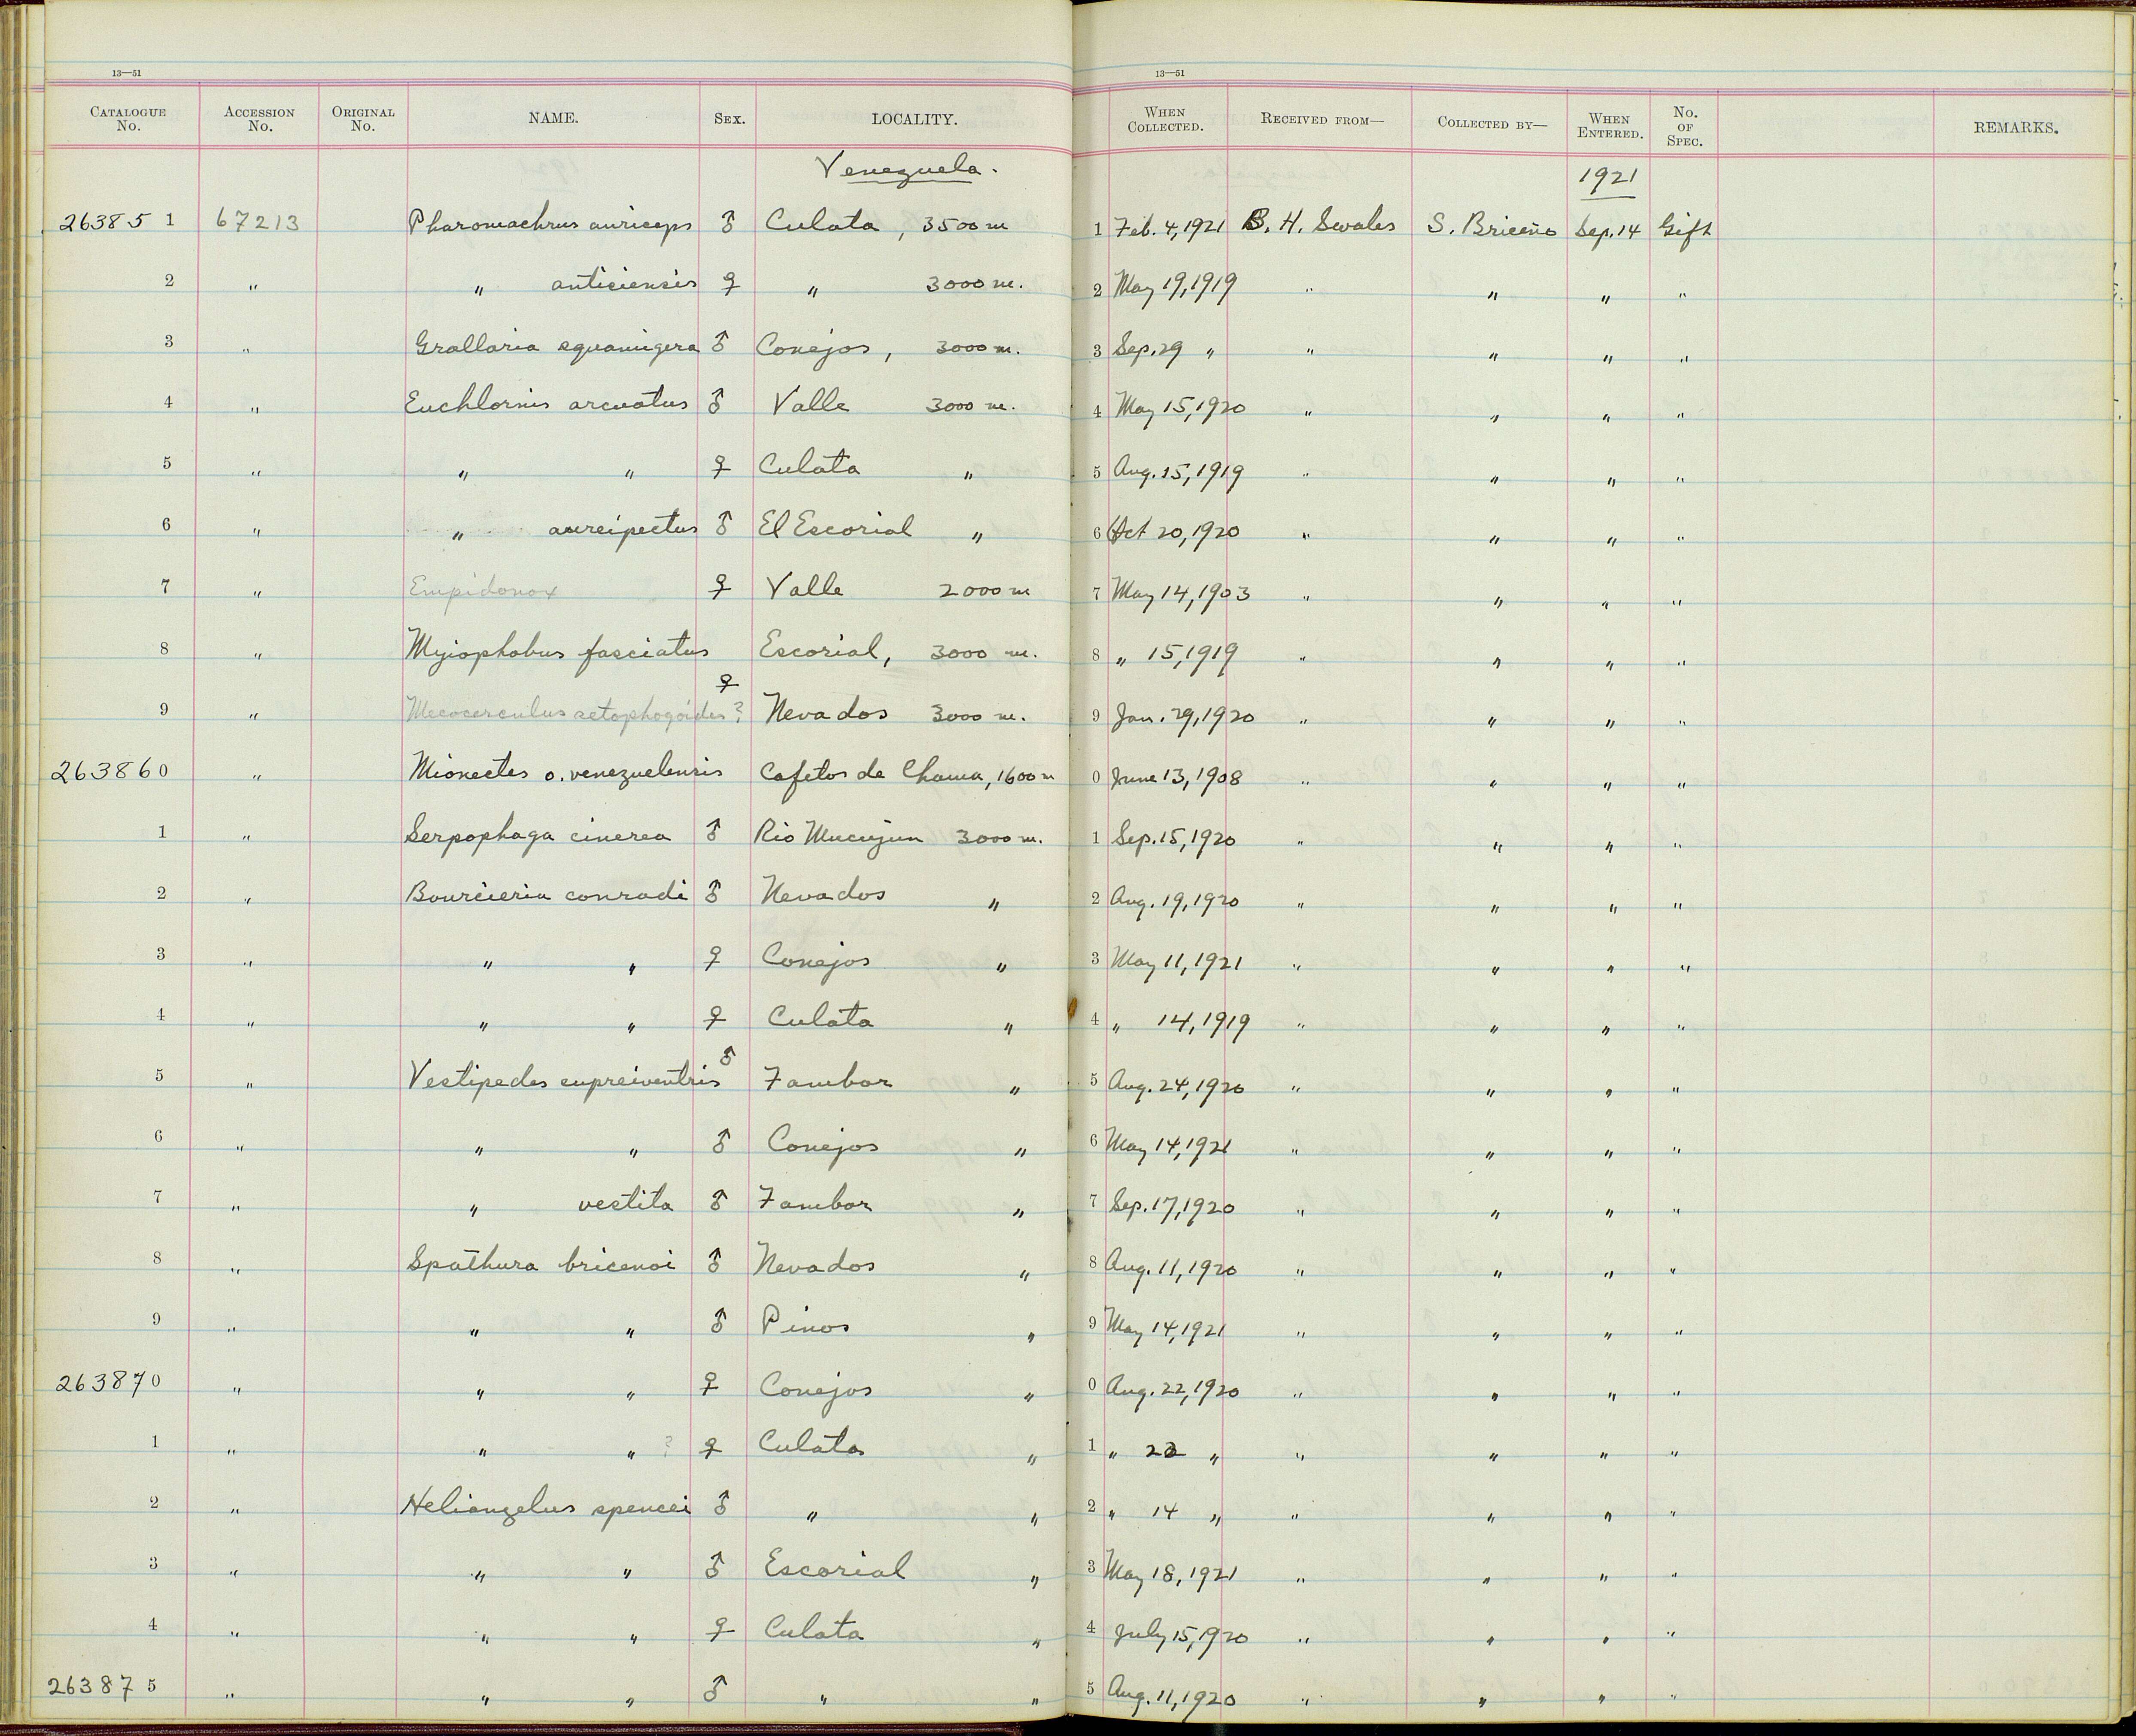 13—51 13—51
CATALOGUE No. ACCESSION No. ORIGINAL No. NAME. SEX. LOCALITY. WHEN COLLECTED. RECEIVED FROM— COLLECTED BY— WHEN ENTERED. No. OF SPEC. REMARKS.
Venezuela. 1921
26385 1 67213 Pharomachrus auriceps ♂ Culata, 3500 m 1 Feb. 4, 1921 B. H. Swales S. Briceño Sep. 14 Gift
2 " " antisiensis ♀ " 3000 m. 2 May 19, 1919 " " " "
3 " Grallaria squamigera ♂ Conejos, 3000 m. 3 Sep. 29 " " " " "
4 " Euchlornis arcuatus ♂ Valle 3000 m. 4 May 15, 1920 " " " "
5 " " " ♀ Culata " 5 Aug. 15, 1919 " " " "
6 " " aureipectus ♂ El Escorial " 6 Oct 20, 1920 " " " "
7 " Empidonax ♀ Valle 2000 m 7 May 14, 1903 " " " "
8 " Myiophobus fasciatus Escorial, 3000 m. 8 " 15, 1919 " " " "
9 " Mecocerculus setophagoides ? ♀ Nevados 3000 m. 9 Jan. 29, 1920 " " " "
263860 " Mionectes o. venezuelensis Cafetos de Chama, 1600 m 0 June 13, 1908 " " " "
1 " Serpophaga cinerea ♂ Rio Mucujun 3000 m. 1 Sep. 15, 1920 " " " "
2 " Bourcieria conradi ♂ Nevados " 2 Aug. 19, 1920 " " " "
3 " " " ♀ Conejos " 3 May 11, 1921 " " " "
4 " " " ♀ Culata " 4 " 14, 1919 " " " "
5 " Vestipedes cupreiventris ♂ Tambor " 5 Aug. 24, 1920 " " " "
6 " " " ♂ Conejos " 6 May 14, 1921 " " " "
7 " " vestita ♂ Tambor " 7 Sep. 17, 1920 " " " "
8 " Spathura bricenoi ♂ Nevados " 8 Aug. 11, 1920 " " " "
9 " " " ♂ Pinos " 9 May 14, 1921 " " " "
263870 " " " ♀ Conejos " 0 Aug. 22, 1920 " " " "
1 " " " ? ♀ Culata " 1 " " " " " "
2 " Heliangelus spencei ♂ " " 2 " 14 " " " " "
3 " " " ♂ Escorial " 3 May 18, 1921 " " " "
4 " " " ♀ Culata " 4 July 15, 1920 " " " "
263875 " " " ♂ " " 5 Aug. 11, 1920 " " " "